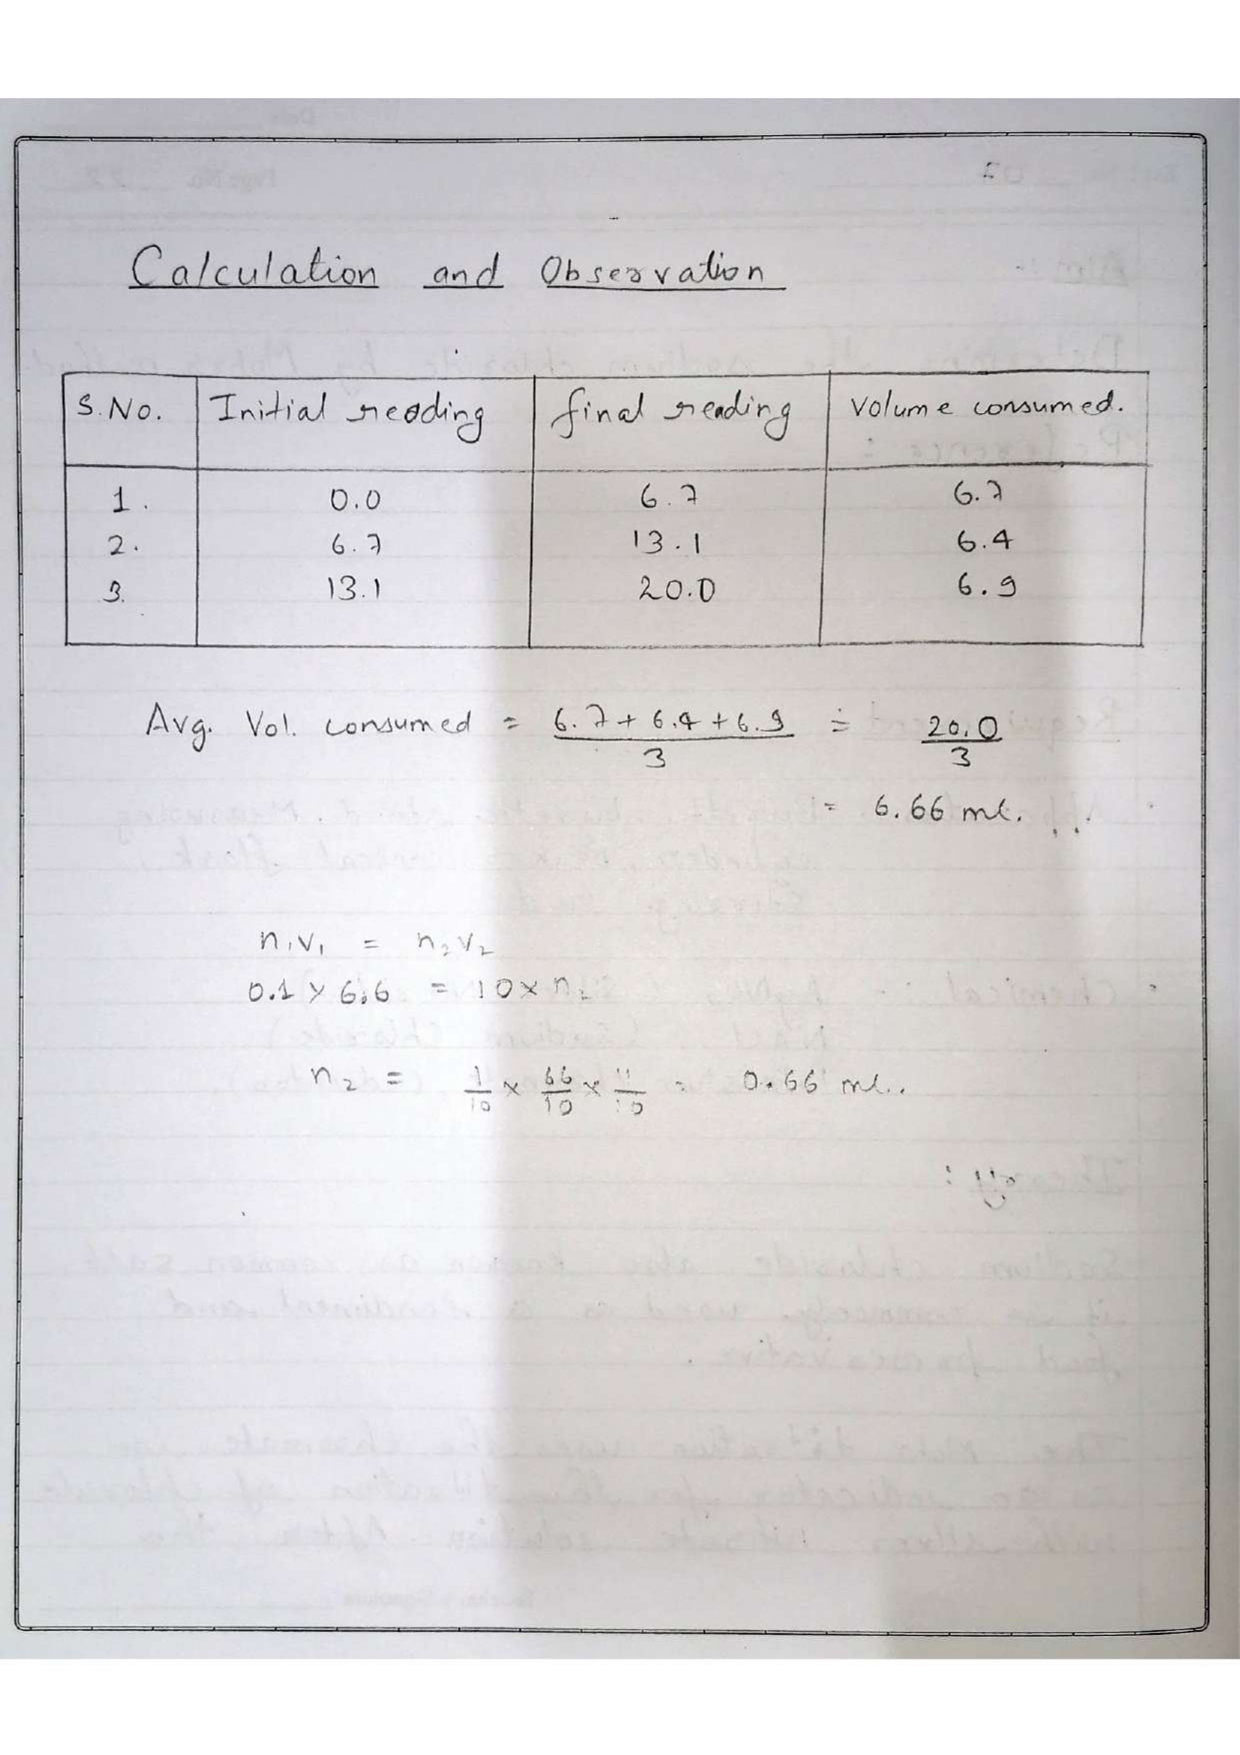 Calculation and Observation
S.No. Initial reading final reading Volume consumed.
1. 0.0 6.7 6.7
2. 6.7 13.1 6.4
3. 13.1 20.0 6.9
Avg. Vol. consumed = 6.7+6.4+6.9/3 = 20.0/3
= 6.66 ml.
n1v1 = n2v2
0.1 x 6.6 = 10 x n2
n2 = 1/10 x 66/10 x 11/10 = 0.66 ml..